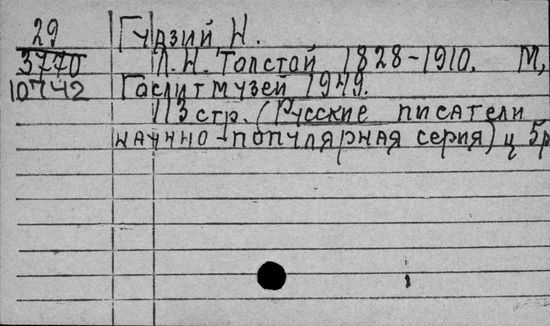 29 Гудзий Н.
3770 Л.Н. Толстой 1828-1910. М,
10742 Гослитмузей 1949.
113 стр. (Русские писатели
научно-популярная серия) ц 5р